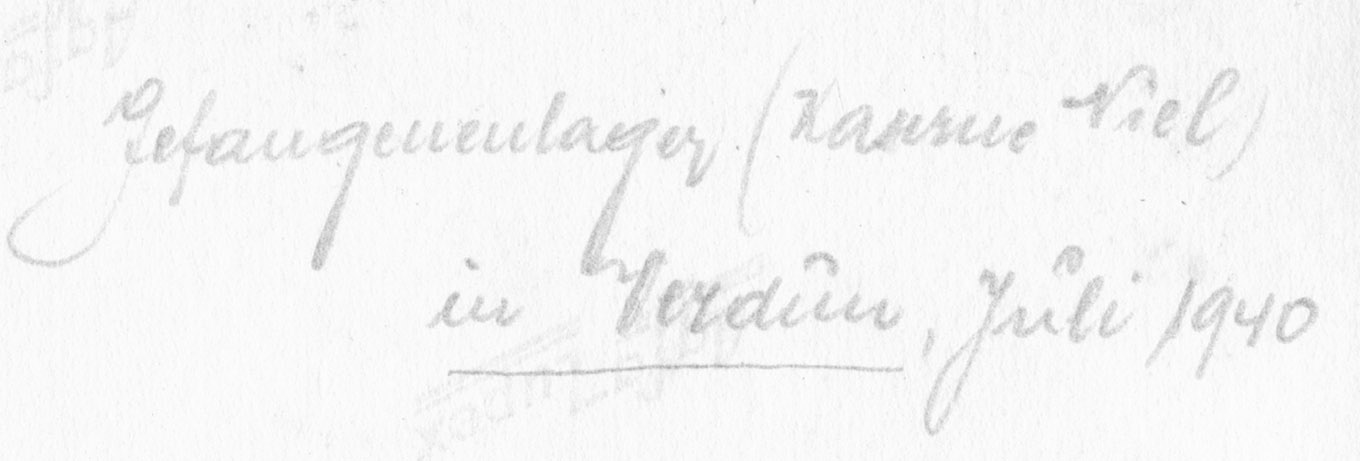 Gefangenenlager (Kaserne Niel)
in Verdun, Juli 1940